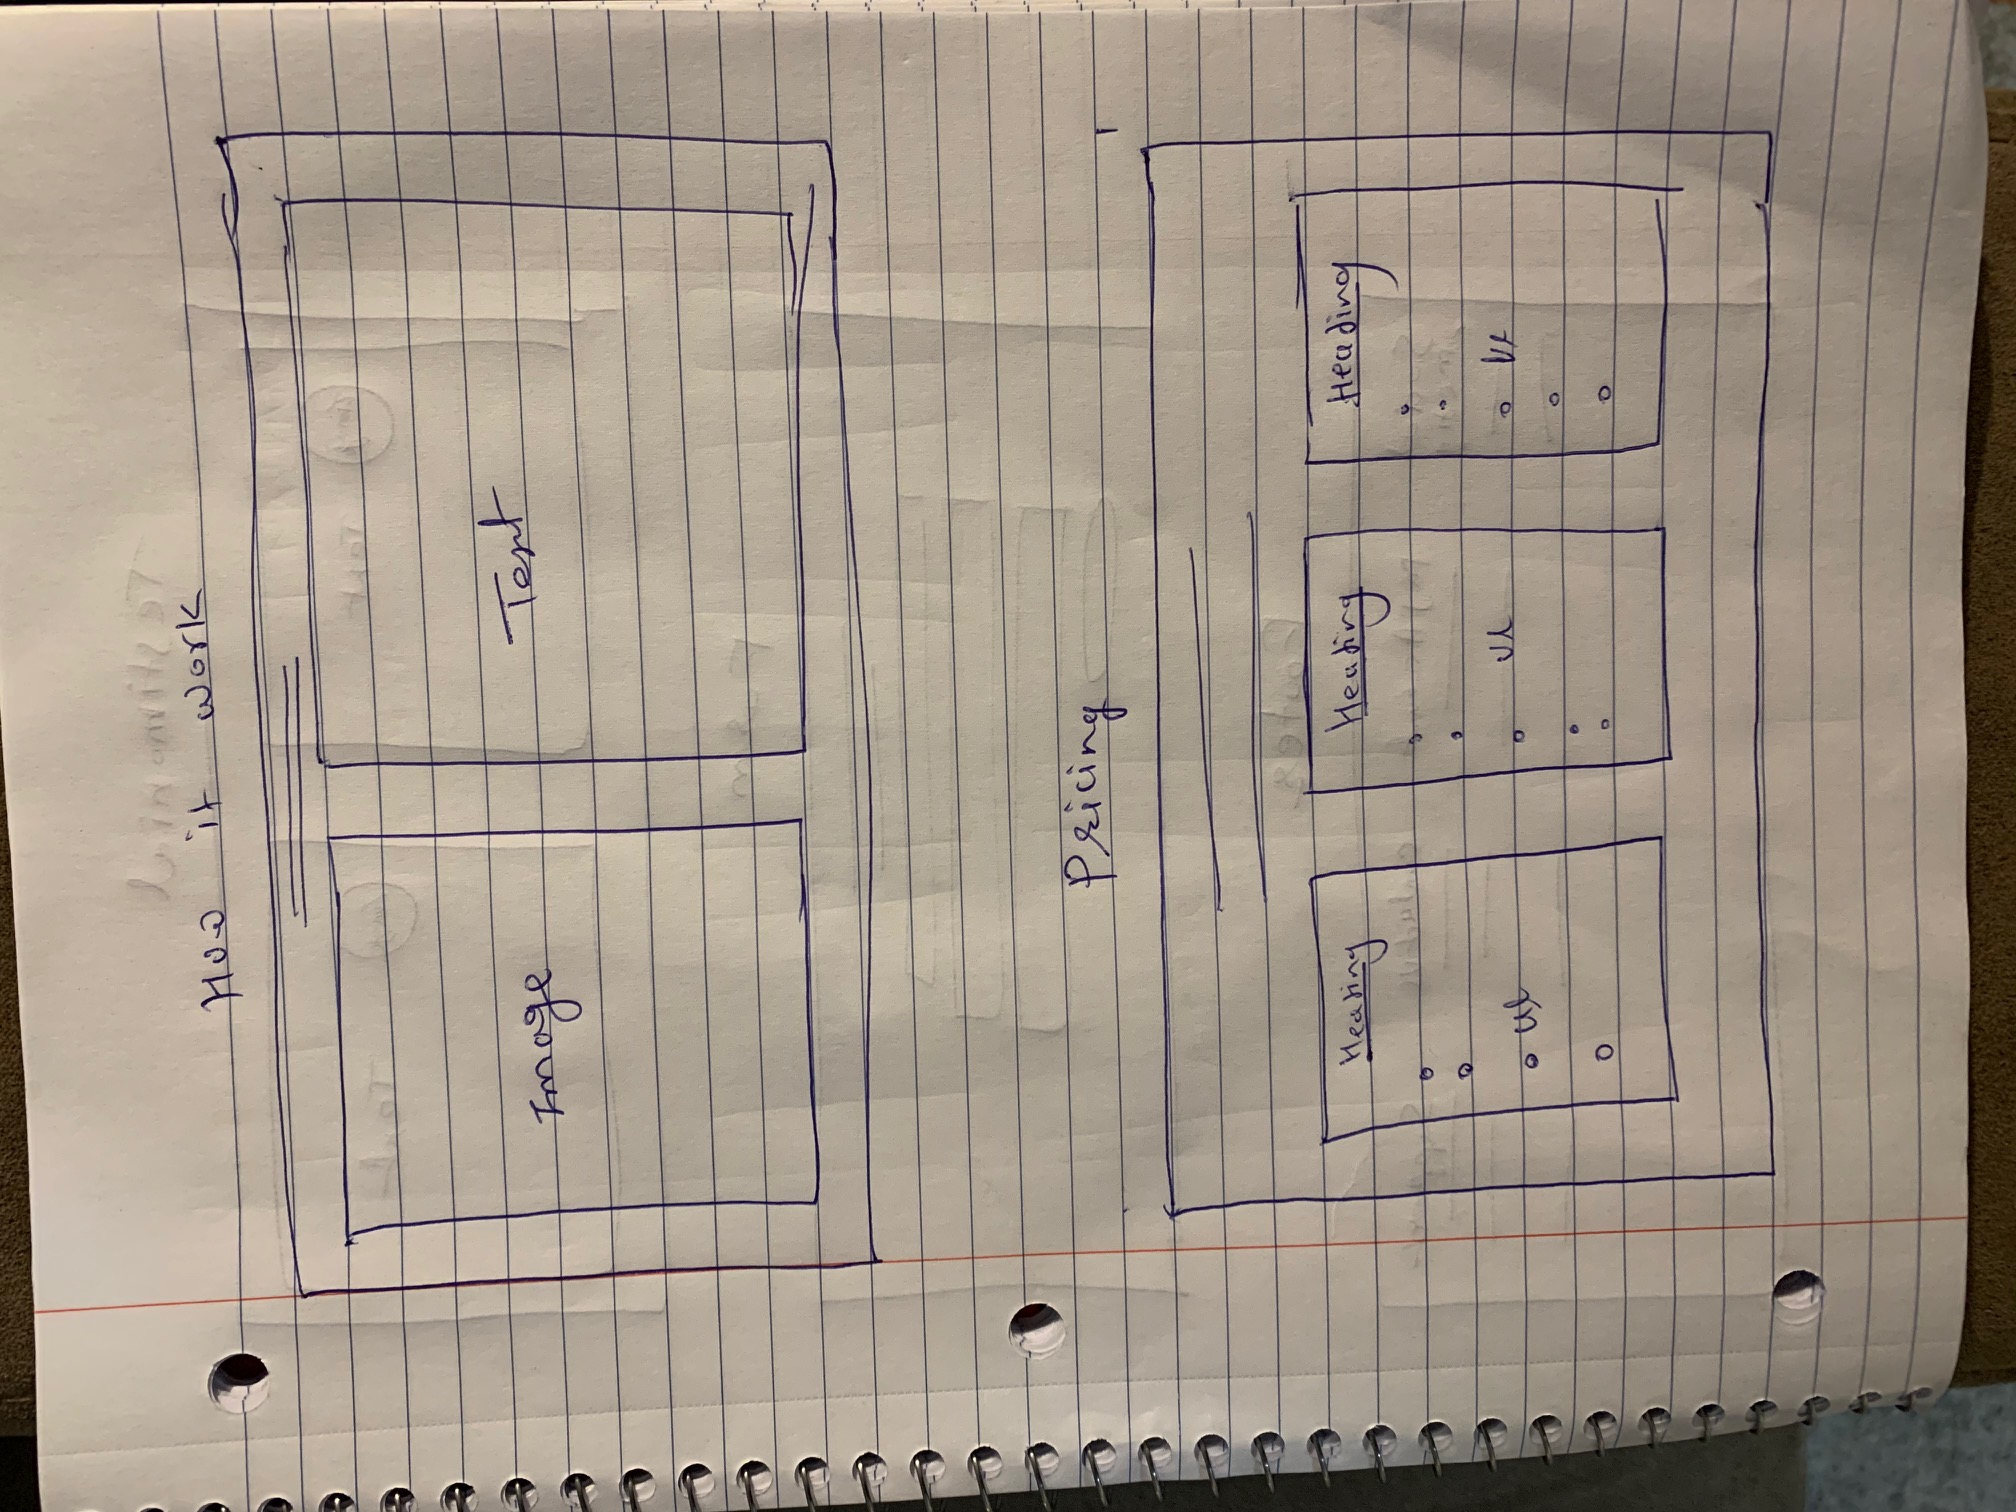 How it work
Image
Text
Pricing
Heading Heading Heading
ul ul ul